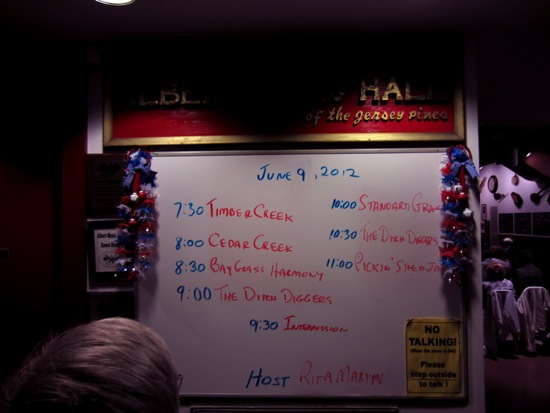 HALL
of the Jersey Pines
JUNE 9, 2012
7:30 TIMBER CREEK
8:00 CEDAR CREEK
8:30 BAY GRASS HARMONY
9:00 THE DITCH DIGGERS
9:30 INTERMISSION
10:00 STANDARD
10:30 THE DITCH DIGGERS
11:00 PICKIN'
HOST RITA MARTYN
NO
TALKING!
(When the show is ON)
Please
step outside
to talk!